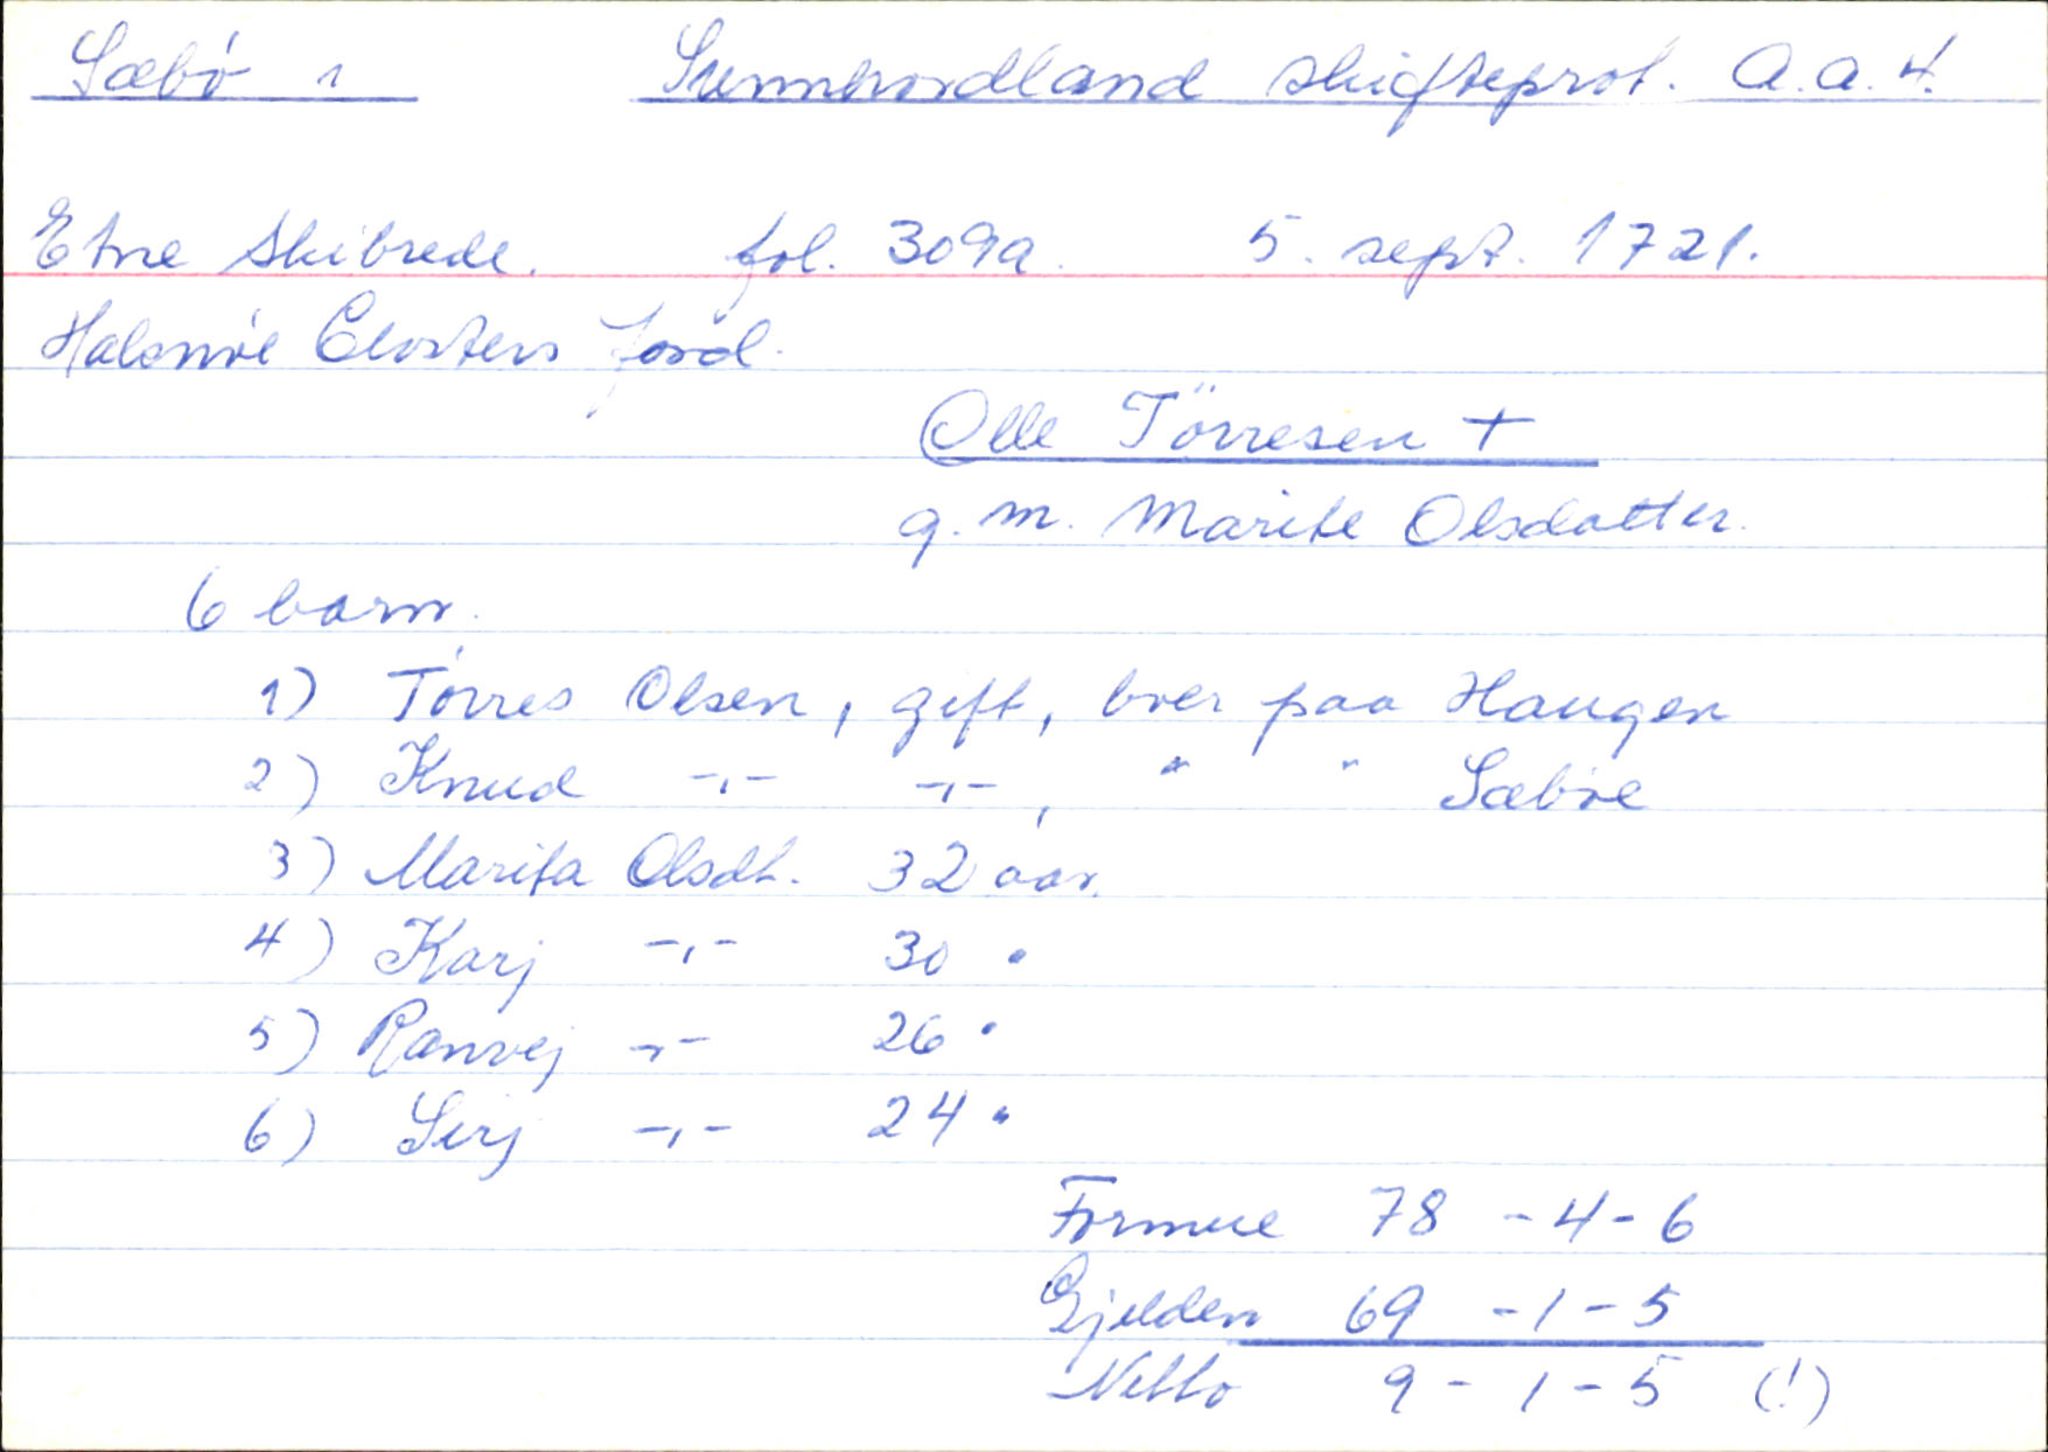 Sæbø 1 Sunnhordland skifteprot. A.a.4.
Etne Skibrede. fol. 309a. 5. sept. 1721.
Halsnøe Closters jord.
Olle Törresen +
g. m. Marite Olsdatter.
6 barn.
1) Tørres Olsen, gift, boer paa Haugen
2) Knud -,- -,-, " " Sæbøe
3) Marita Olsdt. 32 aar.
4) Karj -,- 30 "
5) Ranvej -,- 26 "
6) Sirj -,- 24 "
Formue 78 - 4 - 6
Gjelden 69 - 1 - 5
Netto 9 - 1 - 5 (!)